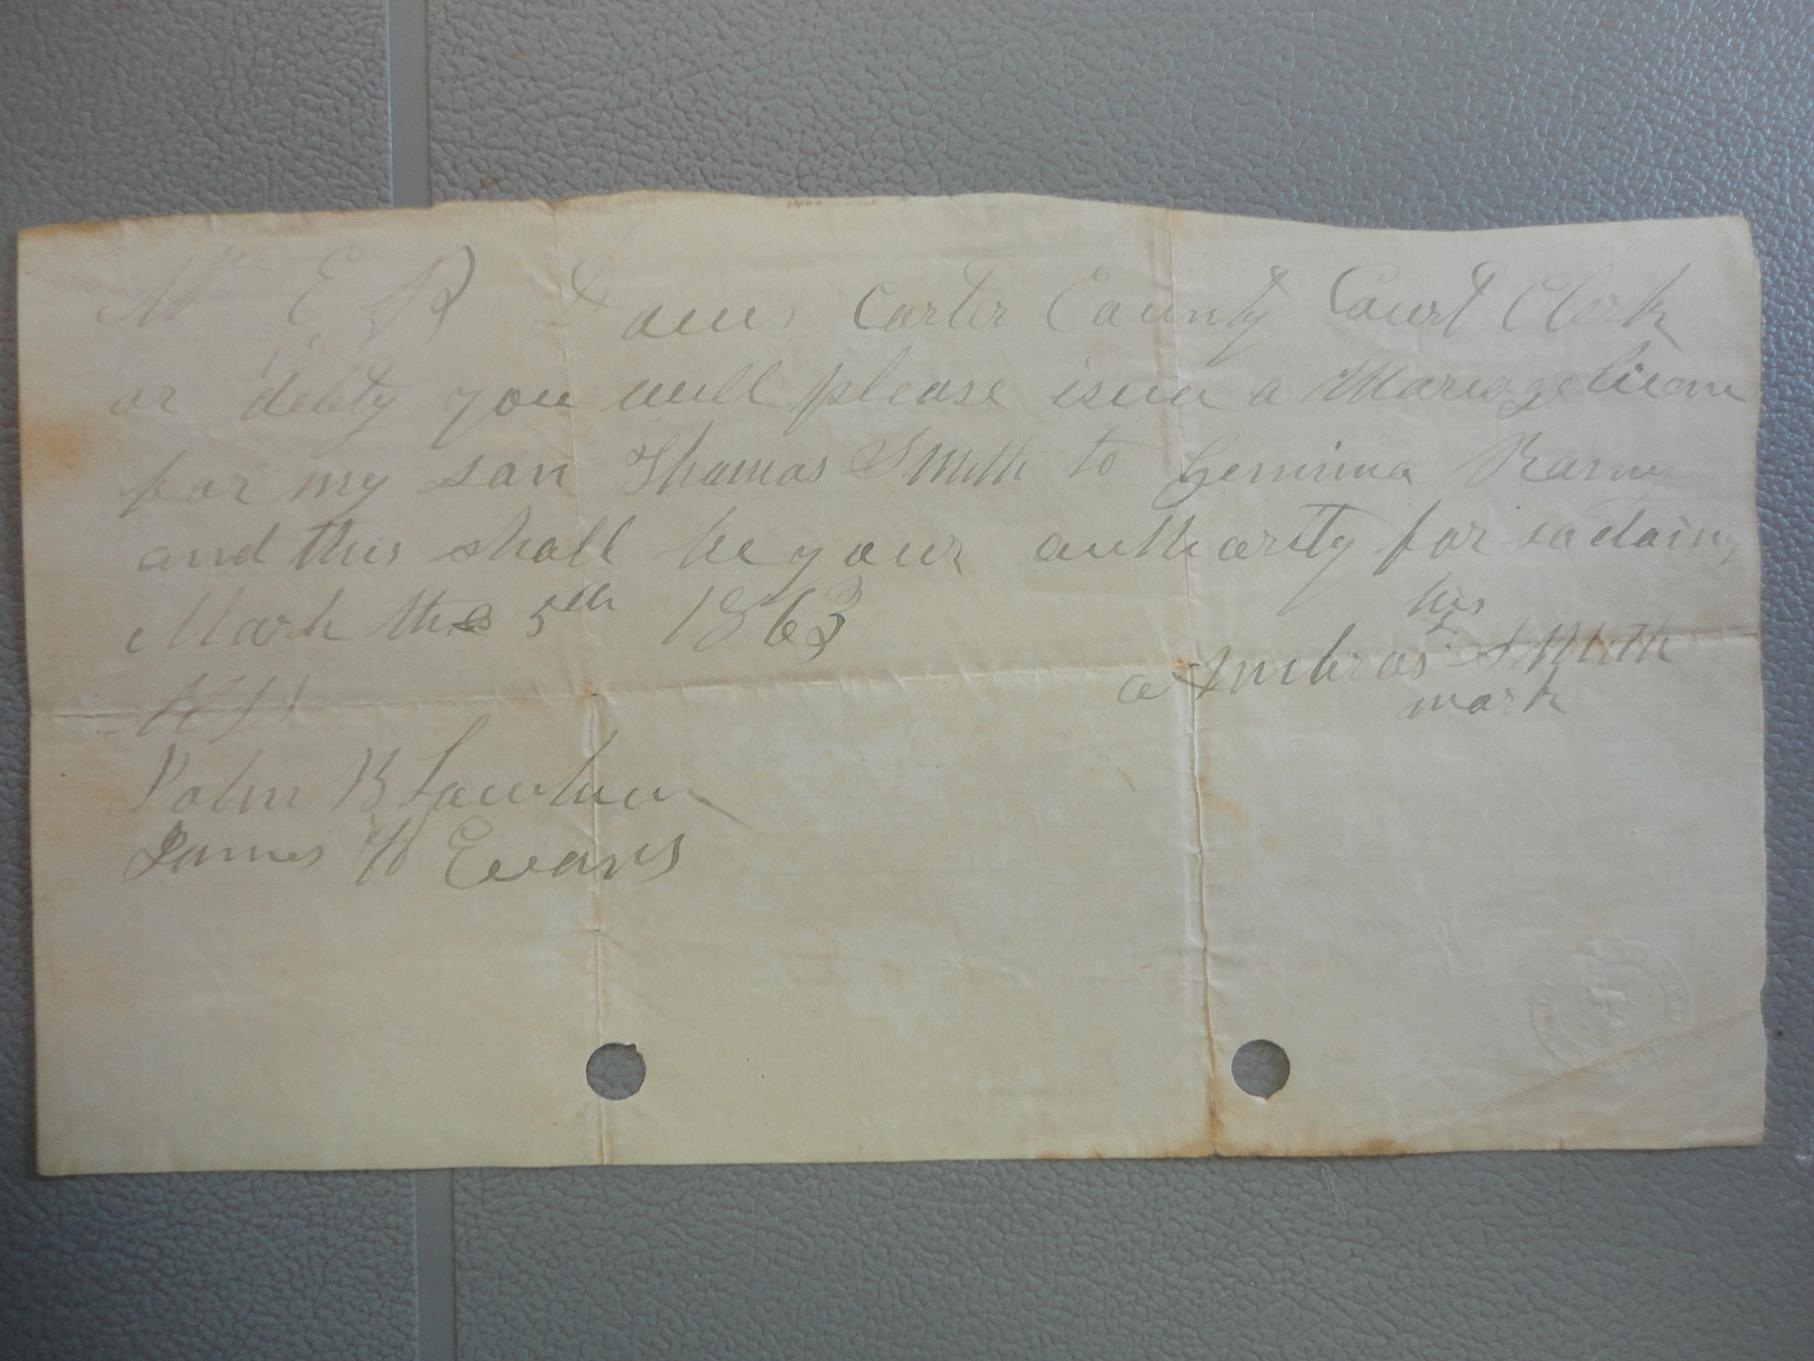 Mr E R Davis Carter County Court Clerk
or debty you will please isue a Mariage licem
for my son Thomas Smith to Gemima
and this shall be your authority for so doing
March the 5th 1863
his
Ambros Smith
mark
John B
James H Evans